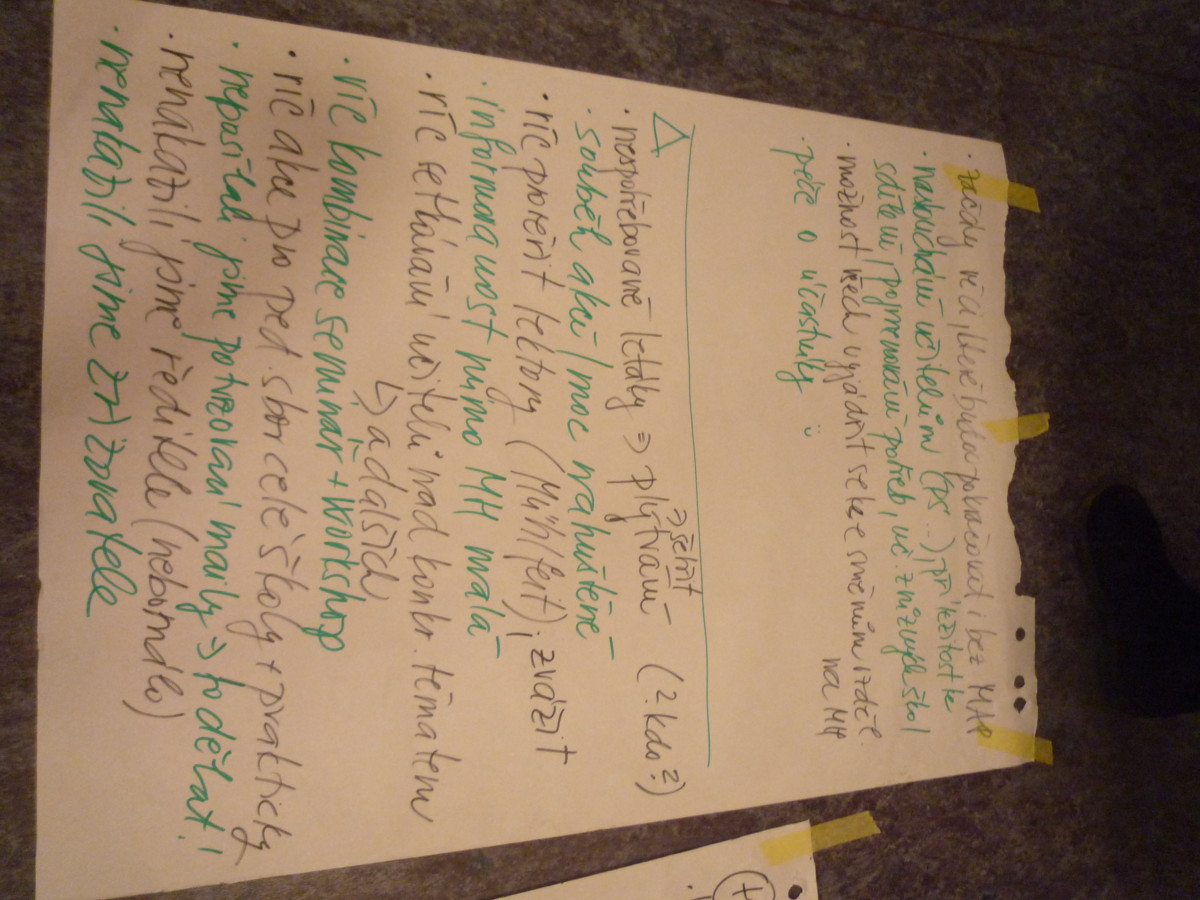 · začaly věci, které budou pokračovat i bez MAP
· naslouchání učitelům (ps..), příležitost ke
sdílení, pojmenování potřeb, uč. z různých škol
· možnost všech vyjádřit se ke směrům vzděl.
na MH
· péče o účastníky ü
Δ
⇒ šetřit
· nespotřebované letáky ⇒ plýtvání (? kdo?)
· souběh akcí / moc nahuštěné
· víc prověřit lektory (Mühlfeit)! zvážit
· informovanost mimo MH malá
· víc setkávání učitelů nad konkr. tématem
↳ a dalších
· víc kombinace seminář + workshop
· víc akce pro ped. sbor celé školy + prakticky
· nepouštěli jsme potvrzovací maily → to dělat!
· nenalazili jsme ředitele (nebo málo)
· nenalazili jsme zřizovatele
+